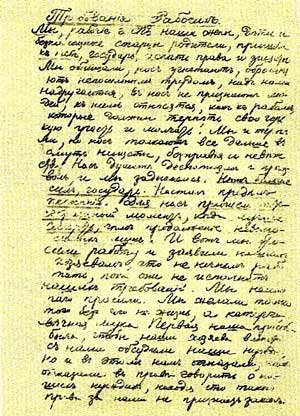 Требования Рабочихъ.
Мы, рабочіе наши жены, дѣти и
старцы родители, пришли
къ тебѣ, государь, искать правды и защиты.
Мы обнищали, насъ угнетаютъ, обременя
ютъ непосильнымъ трудомъ, надъ нами
надругаются, въ насъ не признаютъ лю
дей, къ намъ относятся, какъ къ рабамъ,
которые должны терпѣть свою горь
кую участь и молчать. Мы и терпѣ
ли, но насъ толкаютъ все дальше въ
омутъ нищеты, безправія и невѣже
ства, насъ душитъ деспотизмъ и про
изволъ и мы задыхаемся. Нѣтъ больше
силъ, государь. Насталъ предѣлъ
терпѣнію. Для насъ пришелъ тотъ
моментъ, когда лучше
смерть, чѣмъ продолженіе невыно
симыхъ мукъ. И вотъ мы бро
сили работу и заявили нашимъ
хозяевамъ, что не начнемъ рабо
тать, пока они не исполнятъ
нашихъ требованій. Мы мало
чего просили. Мы желали только
того, безъ чего не жизнь, а каторга,
вѣчная мука. Первая наша просьба
была, чтобы наши хозяева вмѣстѣ
съ нами обсудили наши нужды.
Но и въ этомъ намъ отказали, намъ
отказали въ правѣ говорить о на
шихъ нуждахъ, находя, что такого
права за нами не признаетъ законъ.